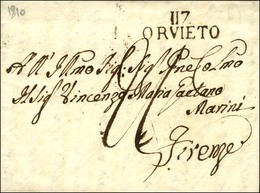 1810
117
ORVIETO
All' Illmo Sig: Sig Pne Colmo
Il Sig Vincenzo Maria Gaetano
Marini
Firenze